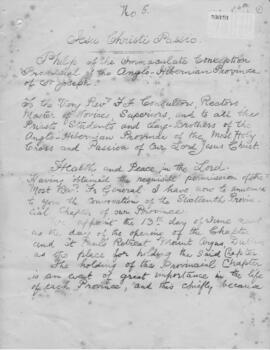 No 5.
Jesu Christi Passio.
Philip of the Immaculate Conception
Provincial of the Anglo-Hibernian Province
of St Joseph.
To the Very Rev. F.F. Consultors, Rectors
Master of Novices, Superiors, and to all the
Priests Students and Lay-Brothers of the
Anglo-Hibernian Province of the Most Holy
Cross and Passion of Our Lord Jesus Christ.
Health and Peace in the Lord.
Having obtained the requisite permission of the
Most Rev. Fr General I have now to announce
to you the convocation of the Sixteenth Provin-
cial Chapter of our Province.
I appoint the 13th day of June next
as the day of the opening of the Chapter
and St Paul's Retreat Mount Argus, Dublin
as the place for holding the said Chapter.
The holding of the Provincial Chapter
is an event of great importance in the life
of each Province, and this chiefly because